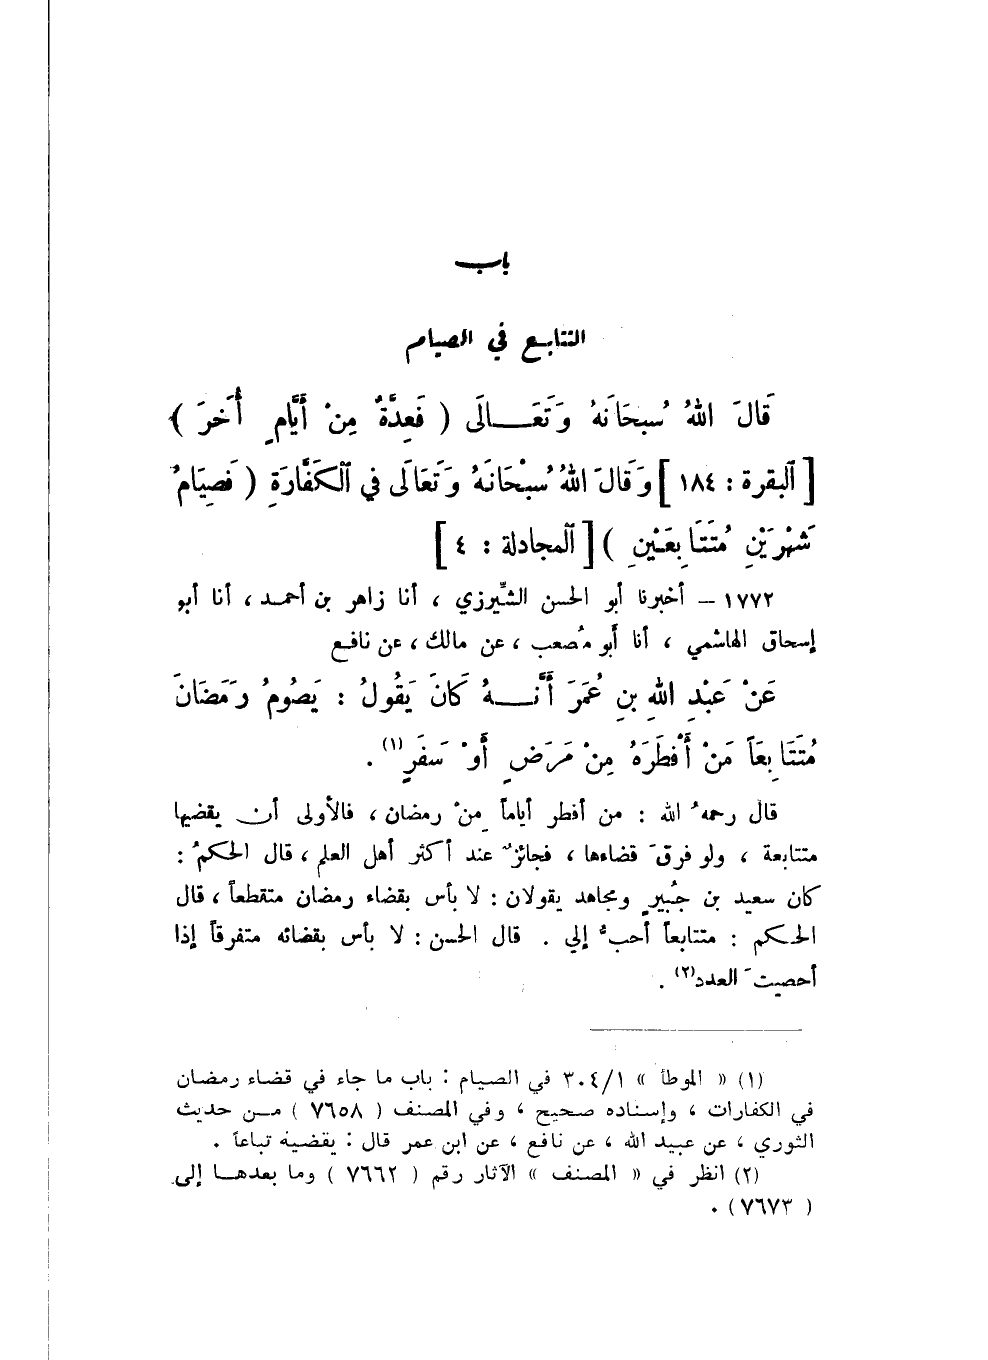 باب
التتابع في الصيام
قَالَ اللهُ سُبحَانَهُ وَتَعَالَى ( فَعِدَّةٌ مِنْ أَيَّامٍ أُخَرَ )
[ البقرة : ١٨٤ ] وَقَالَ اللهُ سُبْحَانَهُ وَتَعَالَى في الكَفَّارَةِ ( فَصِيَامُ
شَهْرَيْنِ مُتَتَابِعَيْنِ ) [ المجادلة : ٤ ]
١٧٧٢ – أخبرنا أبو الحسن الشِّيرزي ، أنا زاهر بن أحمد ، أنا أبو
إسحاق الهاشمي ، أنا أبو مُصعب ، عن مالك ، عن نافع
عَنْ عَبْدِ اللهِ بنِ عُمَرَ أَنَّهُ كَانَ يَقُولُ : يَصُومُ رَمَضَانَ
مُتَتَابِعَاً مَنْ أَفْطَرَهُ مِنْ مَرَضٍ أَوْ سَفَرٍ (١) .
قال رحمهُ الله : من أفطر أياماً مِنْ رمضان ، فالأولى أن يقضيها
متتابعة ، ولو فرقَ قضاءها ، فجائزٌ عند أكثر أهل العلم ، قال الحكمُ :
كان سعيد بن جُبيرٍ ومجاهد يقولان : لا بأس بقضاء رمضان متقطعاً ، قال
الحكم : متتابعاً أحبُّ إلي . قال الحسن : لا بأس بقضائه متفرقاً إذا
أحصيتَ العدد (٢) .
(١) « الموطأ » ٣٠٤/١ في الصيام : باب ما جاء في قضاء رمضان
في الكفارات ، وإسناده صحيح ، وفي المصنف ( ٧٦٥٨ ) من حديث
الثوري ، عن عبيد الله ، عن نافع ، عن ابن عمر قال : يقضيه تباعاً .
(٢) انظر في « المصنف » الآثار رقم ( ٧٦٦٢ ) وما بعدها إلى
( ٧٦٧٣ ) .